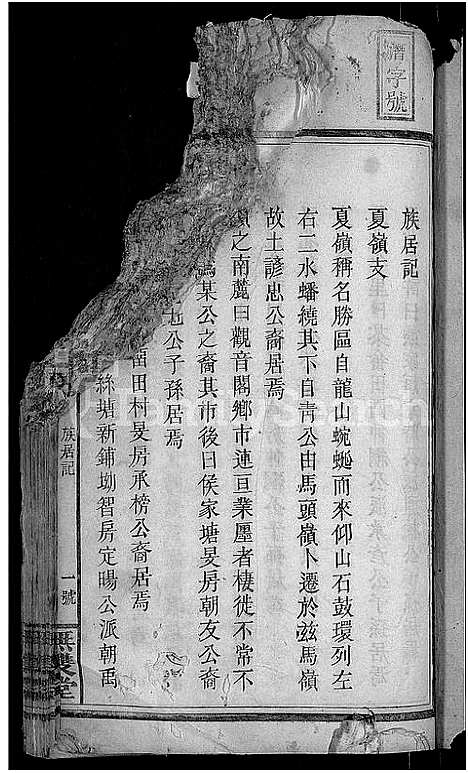 潛字號
族居記
夏嶺支
夏嶺稱名勝區自龍山蜿蜒而來仰山石鼓環列左
右二水蟠繞其下自青公由馬頭嶺卜遷於兹馬嶺
故土諺忠公裔居焉
之南麓曰觀音閣鄉市連亘業廛者棲徙不常不
為某公之裔其市後曰侯家塘旻房朝友公裔
公子孫居焉
田村旻房承榜公裔居焉
絲塘新鋪坳智房定暘公派朝禹
族居記
一號
無雙堂